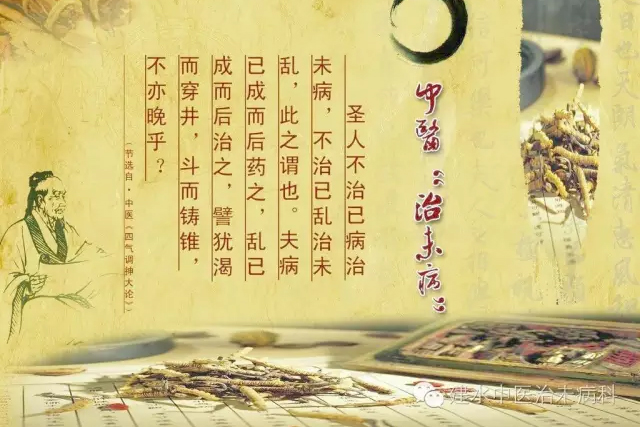 天朗氣清惠風
中醫“治未病”
圣人不治已病治
未病，不治已乱治未
乱，此之谓也。夫病
已成而后药之，乱已
成而后治之，譬犹渴
而穿井，斗而铸锥，
不亦晚乎？
（节选自·中医《四气调神大论》）
建水中医治未病科